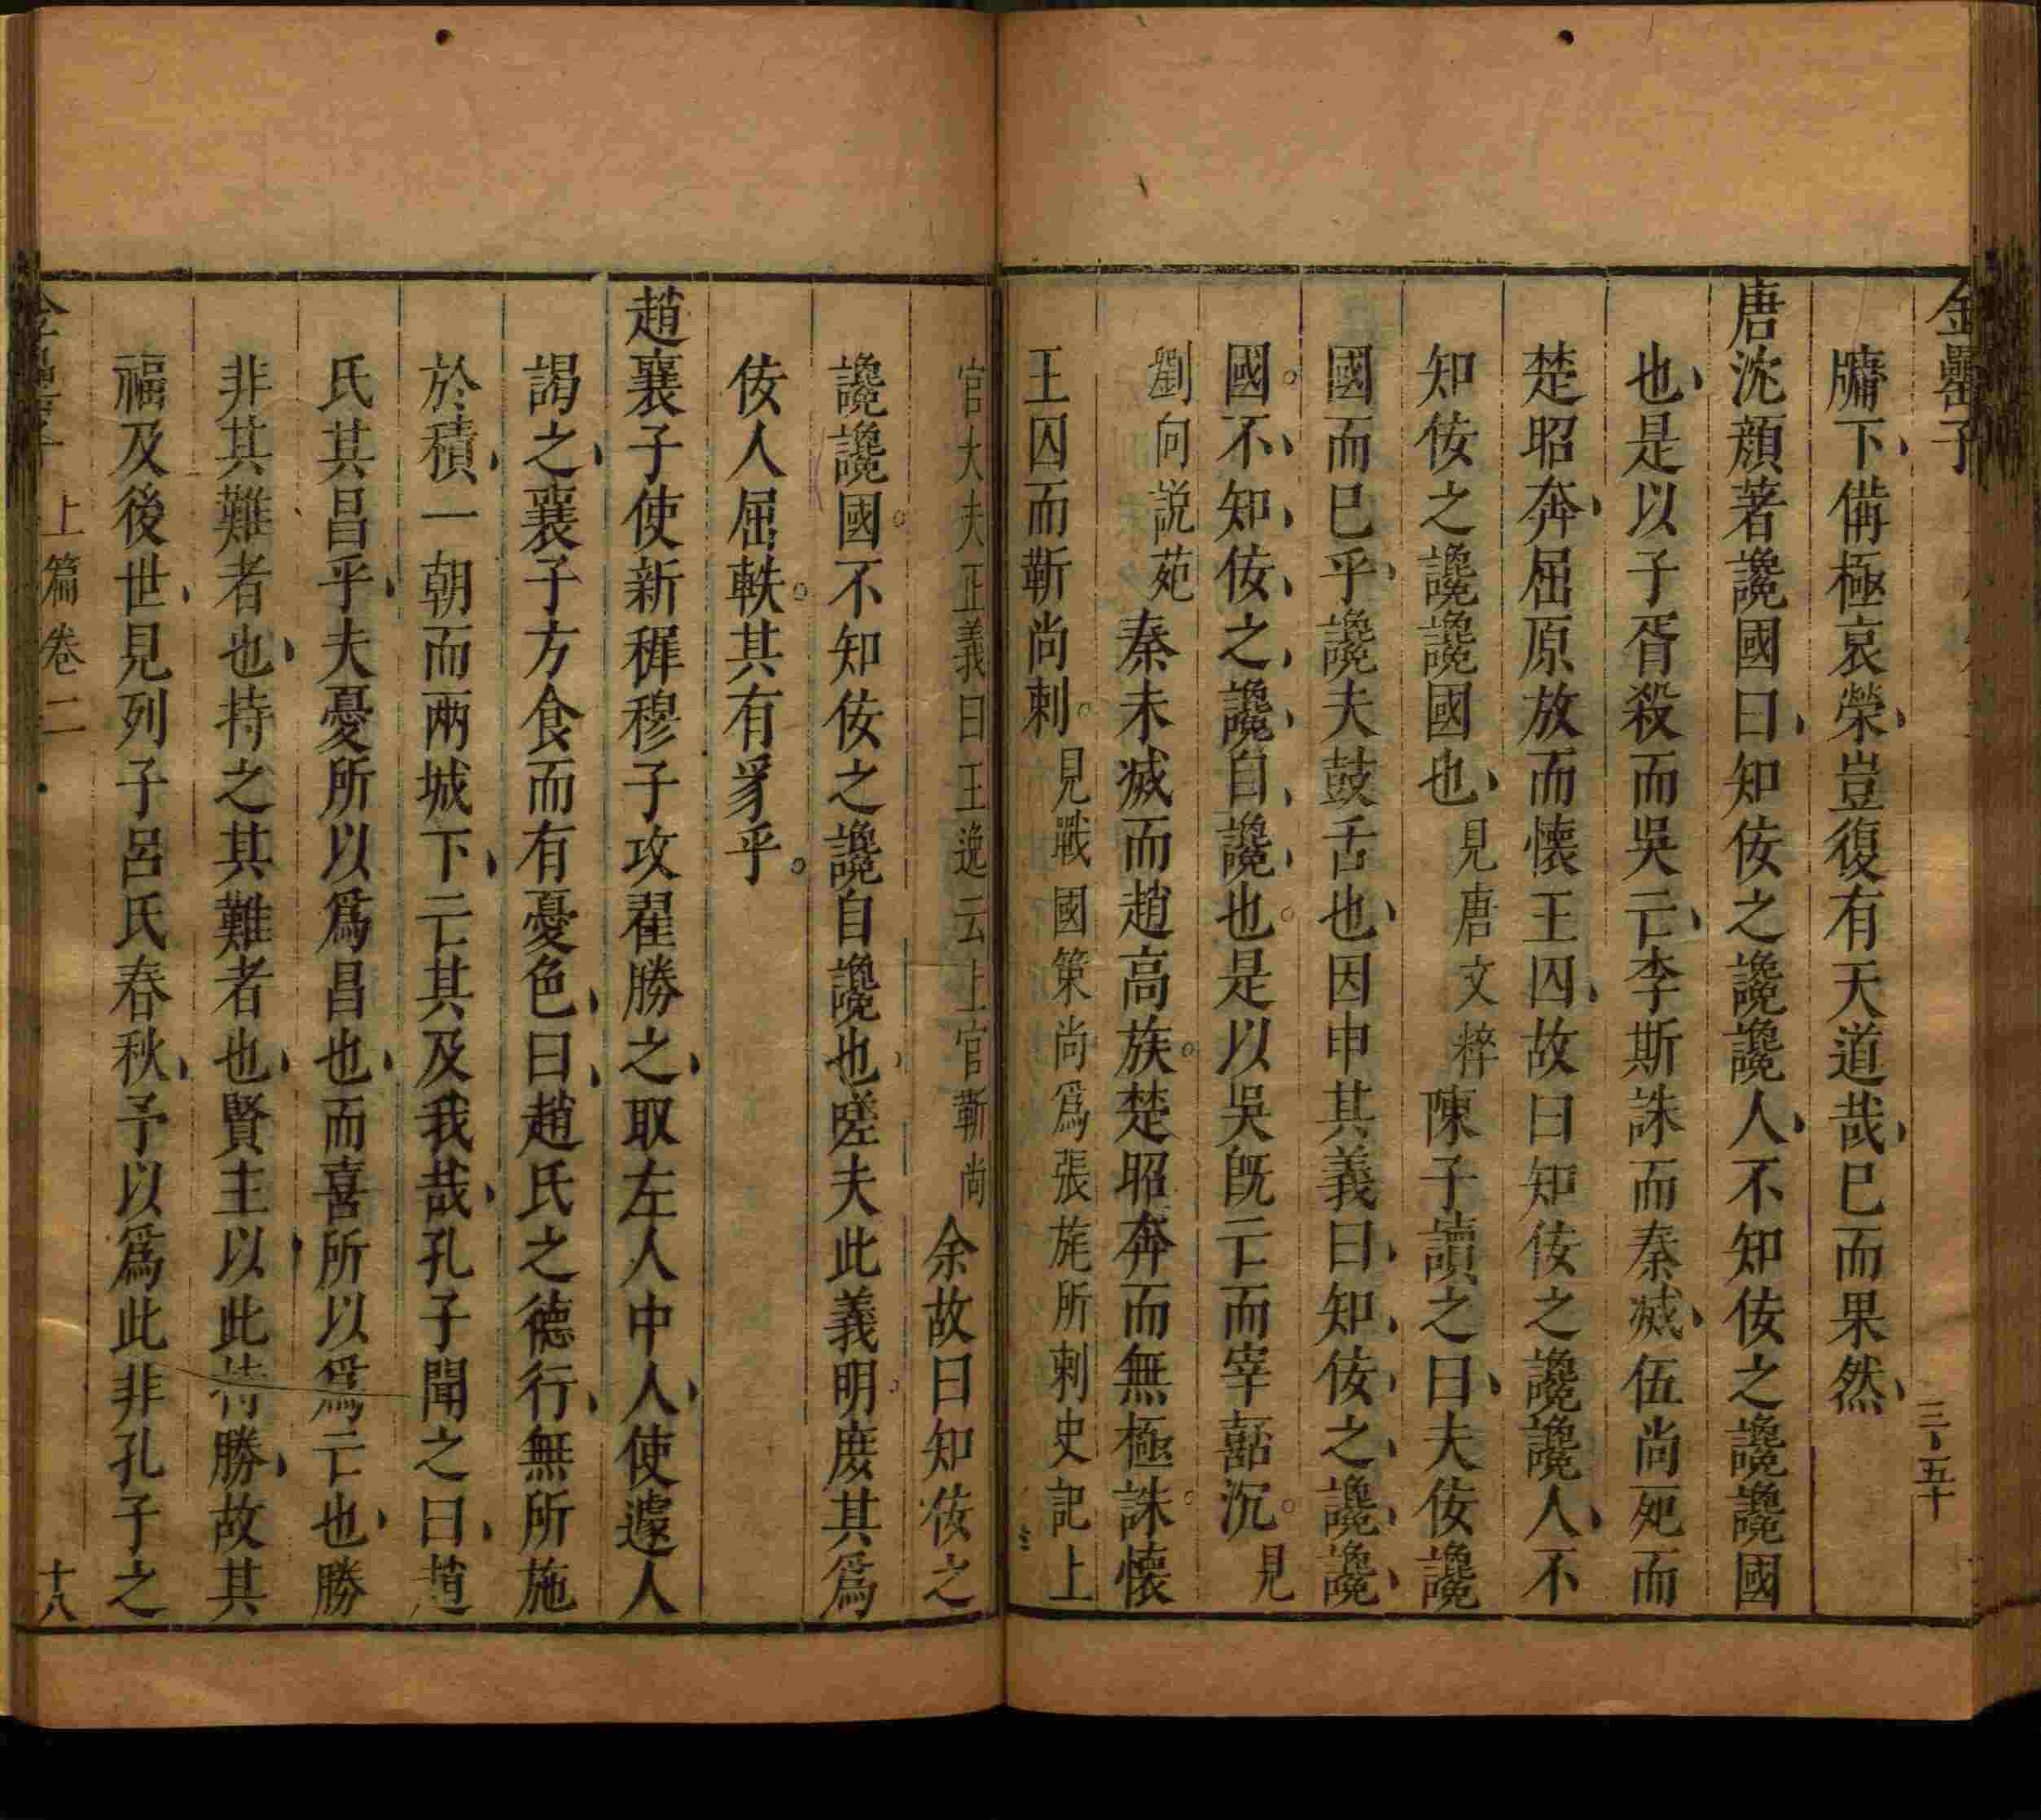 金罍子
三五十
牗下備極哀榮豈復有天道哉已而果然
唐沈顔著讒國曰知佞之讒讒人不知佞之讒讒國
也是以子胥殺而吳亡李斯誅而秦滅伍尚死而
楚昭奔屈原放而懷王囚故曰知佞之讒讒人不
知佞之讒讒國也見唐文粹陳子讀之曰夫佞讒
國而已乎讒夫鼓舌也因申其義曰知佞之讒讒
國不知佞之讒自讒也是以吳既亡而宰嚭沉見
劉向説苑秦未滅而趙高族楚昭奔而無極誅懷
王囚而靳尚刺見戰國策尚爲張旄所刺史記上
官大夫正義曰王逸云上官靳尚余故曰知佞之
讒讒國不知佞之讒自讒也嗟夫此義明庻其爲
佞人屈軼其有豸乎
趙襄子使新穉穆子攻翟勝之取左人中人使遽人
謁之襄子方食而有憂色曰趙氏之德行無所施
於積一朝而兩城下亡其及我哉孔子聞之曰趙
氏其昌乎夫憂所以爲昌也而喜所以爲亡也勝
非其難者也持之其難者也賢主以此持勝故其
福及後世見列子呂氏春秋予以爲此非孔子之
上篇卷二
十八